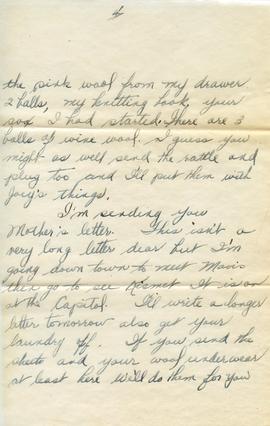 4
the pink wool from my drawer
2 balls, my knitting book, your
sox I had started. There are 3
balls of wine wool. I guess you
might as well send the rattle and
plug too and I'll put them with
Joey's things.
I'm sending you
Mother's letter. This isn't a
very long letter dear but I'm
going down town to meet Mavis
then go to see Kismet It is on
at the Capitol. I'll write a longer
letter tomorrow also get your
laundry off. If you send the
sheets and your wool underwear
at least here we'll do them for you